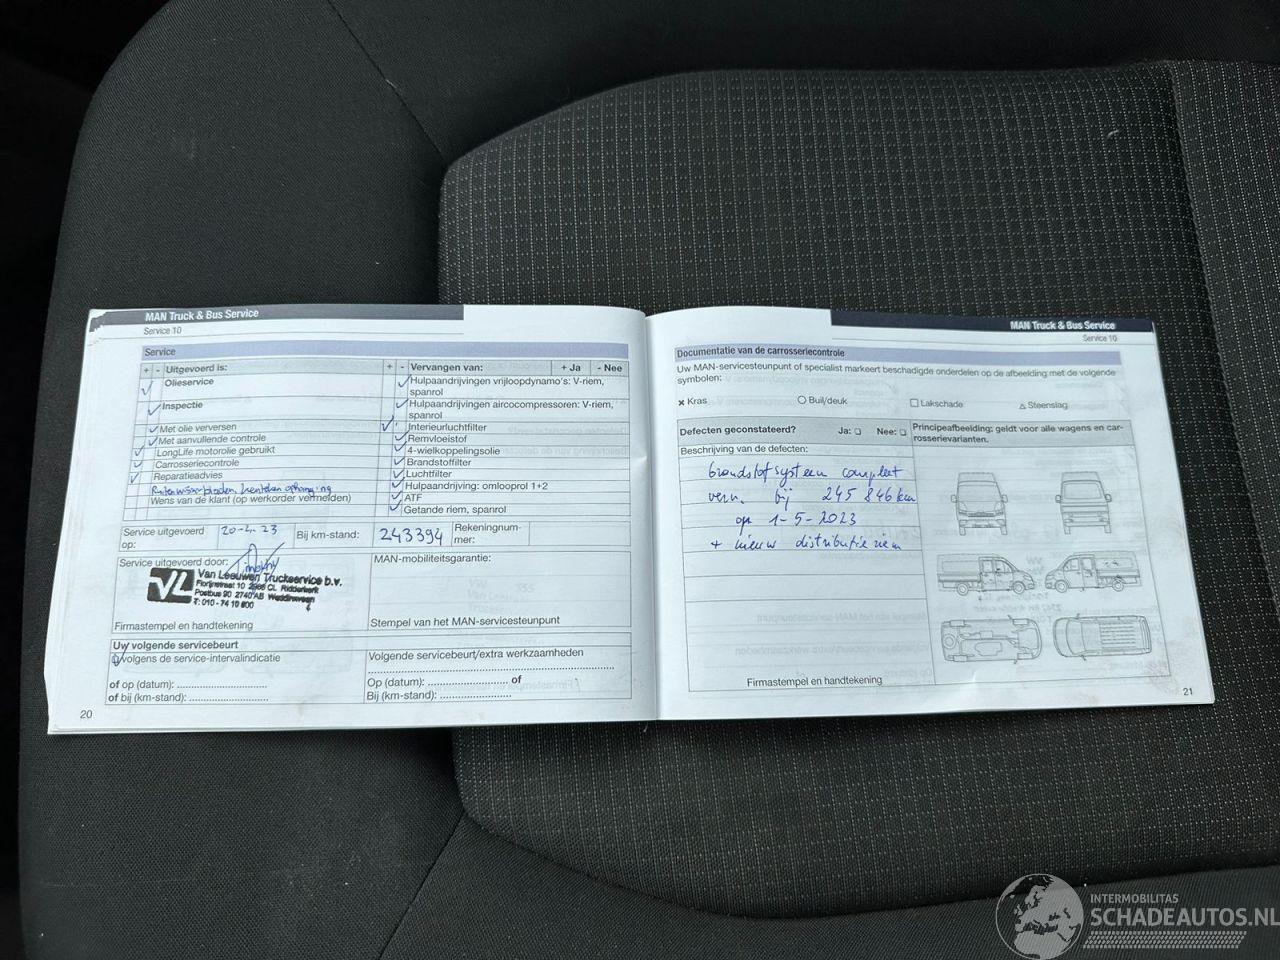 MAN Truck & Bus Service
Service 10
Service
+ - Uitgevoerd is:
Olieservice
Inspectie
Met olie verversen
Met aanvullende controle
LongLife motorolie gebruikt
Carrosseriecontrole
Reparatieadvies
Ruitenwisserbladen,
Wens van de klant (op werkorder vermelden)
+ - Vervangen van: + Ja - Nee
Hulpaandrijvingen vrijloopdynamo's: V-riem,
spanrol
Hulpaandrijvingen aircocompressoren: V-riem,
spanrol
Interieurluchtfilter
Remvloeistof
4-wielkoppelingsolie
Brandstoffilter
Luchtfilter
Hulpaandrijving: omlooprol 1+2
ATF
Getande riem, spanrol
Service uitgevoerd
op:
20-4-23
Bij km-stand:
243394
Rekeningnum-
mer:
Service uitgevoerd door:
VL
Van Leeuwen Truckservice b.v.
Florijnstraat 10 2988 CL Ridderkerk
Postbus 90 2740 AB Waddinxveen
T: 010 - 74 10 800
Firmastempel en handtekening
MAN-mobiliteitsgarantie:
Stempel van het MAN-servicesteunpunt
Uw volgende servicebeurt
volgens de service-intervalindicatie
of op (datum):
of bij (km-stand):
Volgende servicebeurt/extra werkzaamheden
Op (datum): of
Bij (km-stand):
20
MAN Truck & Bus Service
Service 10
Documentatie van de carrosseriecontrole
Uw MAN-servicesteunpunt of specialist markeert beschadigde onderdelen op de afbeelding met de volgende
symbolen:
x Kras O Buil/deuk □ Lakschade △ Steenslag
Defecten geconstateerd? Ja: □ Nee: □
Principeafbeelding: geldt voor alle wagens en car-
rosserievarianten.
Beschrijving van de defecten:
brandstofsysteem compleet
vern. bij 245 846 km
op 1-5-2023
+ nieuw distributieriem
Firmastempel en handtekening
21
INTERMOBILITAS
SCHADEAUTOS.NL